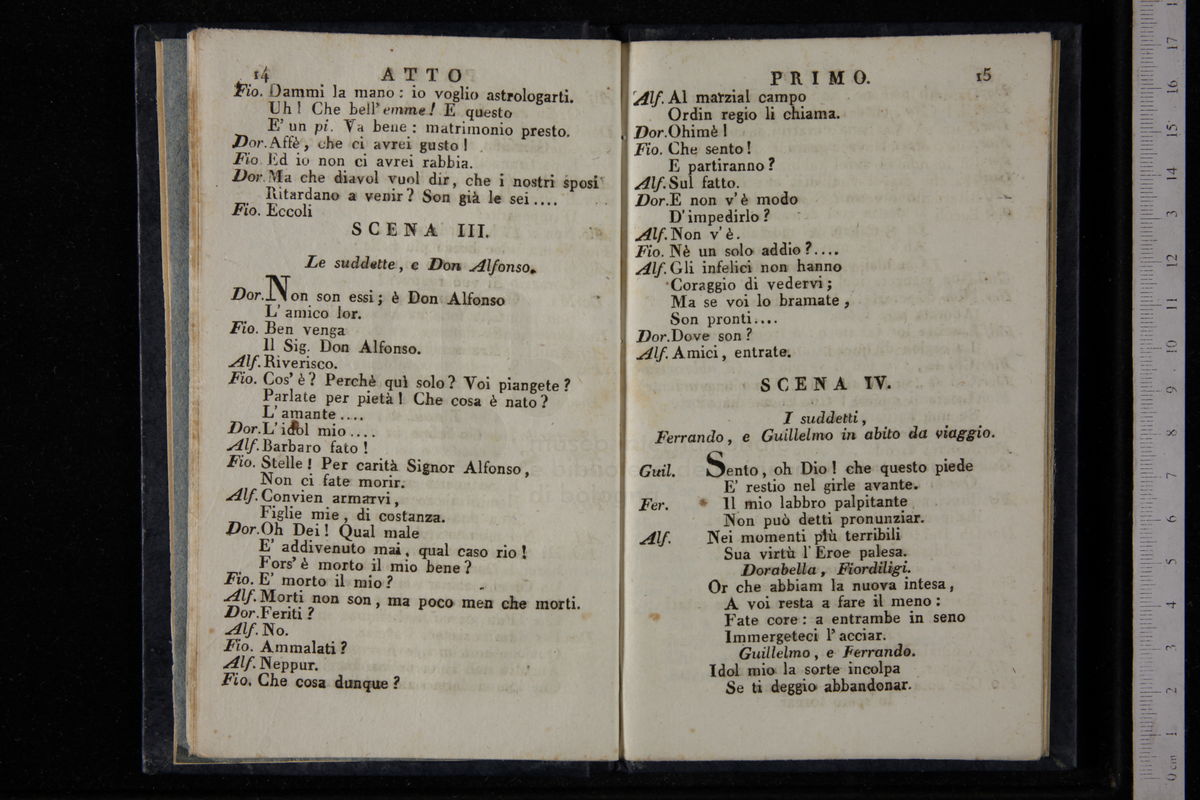 14 ATTO
Fio. Dammi la mano: io voglio astrologarti.
Uh! Che bell'emme! E questo
E' un pi. Va bene: matrimonio presto.
Dor. Affè, che ci avrei gusto!
Fio. Ed io non ci avrei rabbia.
Dor. Ma che diavol vuol dir, che i nostri sposi
Ritardano a venir? Son già le sei....
Fio. Eccoli
SCENA III.
Le suddette, e Don Alfonso.
Dor. Non son essi; è Don Alfonso
L' amico lor.
Fio. Ben venga
Il Sig. Don Alfonso.
Alf. Riverisco.
Fio. Cos' è? Perchè quì solo? Voi piangete?
Parlate per pietà! Che cosa è nato?
L' amante....
Dor. L' idol mio....
Alf. Barbaro fato!
Fio. Stelle! Per carità Signor Alfonso,
Non ci fate morir.
Alf. Convien armarvi,
Figlie mie, di costanza.
Dor. Oh Dei! Qual male
E' addivenuto mai, qual caso rio!
Fors' è morto il mio bene?
Fio. E' morto il mio?
Alf. Morti non son, ma poco men che morti.
Dor. Feriti?
Alf. No.
Fio. Ammalati?
Alf. Neppur.
Fio. Che cosa dunque?
PRIMO. 15
Alf. Al marzial campo
Ordin regio li chiama.
Dor. Ohimè!
Fio. Che sento!
E partiranno?
Alf. Sul fatto.
Dor. E non v' è modo
D' impedirlo?
Alf. Non v' è.
Fio. Nè un solo addio?....
Alf. Gli infelici non hanno
Coraggio di vedervi;
Ma se voi lo bramate,
Son pronti....
Dor. Dove son?
Alf. Amici, entrate.
SCENA IV.
I suddetti,
Ferrando, e Guillelmo in abito da viaggio.
Guil. Sento, oh Dio! che questo piede
E' restio nel girle avante.
Fer. Il mio labbro palpitante
Non può detti pronunziar.
Alf. Nei momenti più terribili
Sua virtù l' Eroe palesa.
Dorabella, Fiordiligi.
Or che abbiam la nuova intesa,
A voi resta a fare il meno:
Fate core: a entrambe in seno
Immergeteci l' acciar.
Guillelmo, e Ferrando.
Idol mio la sorte incolpa
Se ti deggio abbandonar.
0 cm 1 2 3 4 5 6 7 8 9 10 11 12 13 14 15 16 17